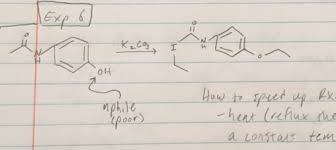 Exp 6
O
N
H
OH
K₂CO₃
O
I
N
H
O
nphile
(poor)
How to speed up Rx
- heat (reflux the
a constant tem